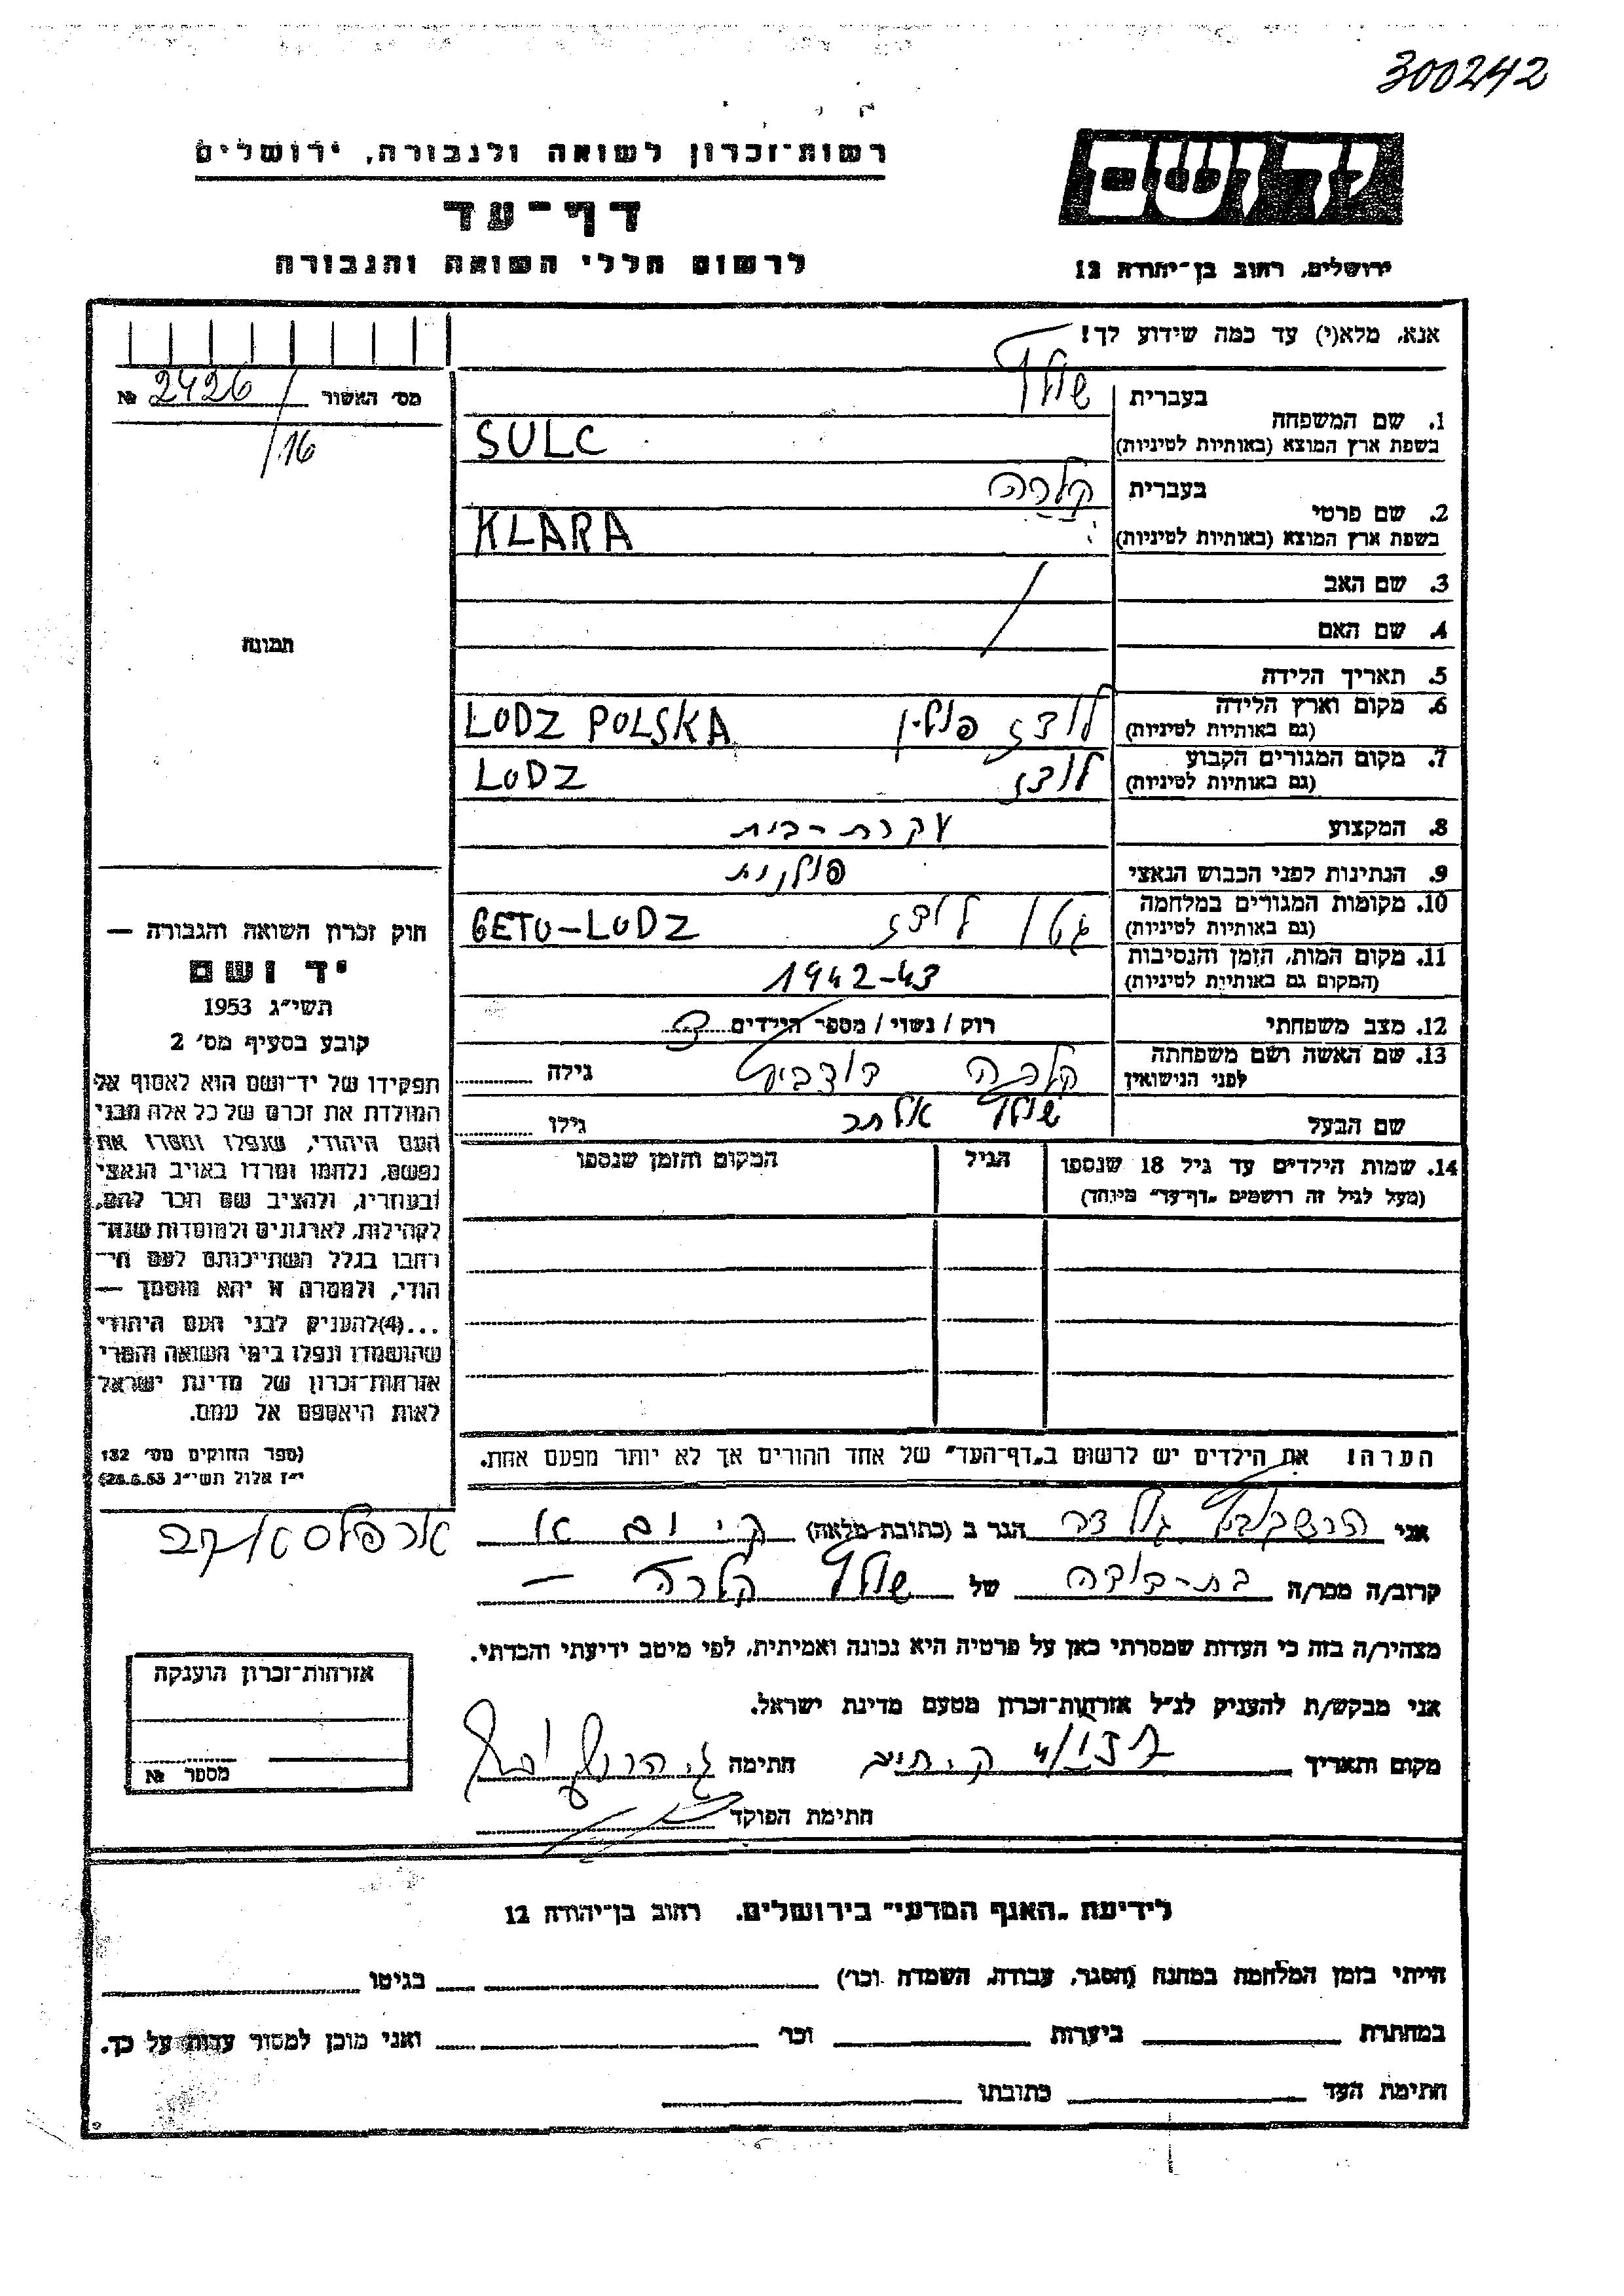 300242
יד ושם
ירושלים, רחוב בן־יהודה 12
רשות־זכרון לשואה ולגבורה, ירושלים
דף־עד
לרשום חללי השואה והגבורה
אנא, מלא(י) עד כמה שידוע לך!
1. שם המשפחה בעברית שולץ
בשפת ארץ המוצא (באותיות לטיניות) SULC
2. שם פרטי בעברית קלרה
בשפת ארץ המוצא (באותיות לטיניות) KLARA
3. שם האב
4. שם האם
5. תאריך הלידה
6. מקום וארץ הלידה (גם באותיות לטיניות) לודז פולין LODZ POLSKA
7. מקום המגורים הקבוע (גם באותיות לטיניות) לודז LODZ
8. המקצוע עקרת-בית
9. הנתינות לפני הכבוש הנאצי פולנית
10. מקומות המגורים במלחמה (גם באותיות לטיניות) גטו לודז GETO-LODZ
11. מקום המות, הזמן והנסיבות (המקום גם באותיות לטיניות) 1942-43
12. מצב משפחתי רוק / נשוי / מספר הילדים
13. שם האשה ושם משפחתה לפני הנישואין קלרה גילה
שם הבעל שולץ אלתר גילו
14. שמות הילדים עד גיל 18 שנספו
(מעל לגיל זה רושמים "דף־עד" מיוחד)
הגיל
המקום והזמן שנספו
הערה! את הילדים יש לרשום ב"דף־העד" של אחד ההורים אך לא יותר מפעם אחת.
מס׳ האשור 2426 №
/16
תמונה
חוק זכרון השואה והגבורה —
יד ושם
תשי״ג 1953
קובע בסעיף מס׳ 2
תפקידו של יד־ושם הוא לאסוף אל
המולדת את זכרם של כל אלה מבני
העם היהודי, שנפלו ומסרו את
נפשם, נלחמו ומרדו באויב הנאצי
ובעוזריו, ולהציב שם וזכר להם,
לקהילות, לארגונים ולמוסדות שנח־
רבו בגלל השתייכותם לעם הי־
הודי, ולמטרה זו יהא מוסמך —
...(4)להעניק לבני העם היהודי
שהושמדו ונפלו בימי השואה והמרי
אזרחות־זכרון של מדינת ישראל
לאות היאספם אל עמם.
(ספר החוקים מס׳ 132
י״ז אלול תשי״ג 28.8.53)
אני גולדה הגר ב (כתובת מלאה)
קרוב/ה מכר/ה בת-דודה של שולץ קלרה —
מצהיר/ה בזה כי העדות שמסרתי כאן על פרטיה היא נכונה ואמיתית, לפי מיטב ידיעתי והכרתי.
אני מבקש/ת להעניק לנ״ל אזרחות־זכרון מטעם מדינת ישראל.
מקום ותאריך חתימה
חתימת הפוקד
אזרחות־זכרון הוענקה
מספר №
לידיעת "האגף המדעי" בירושלים. רחוב בן־יהודה 12
הייתי בזמן המלחמה במחנה (הסגר, עבודה, השמדה וכו׳) בגיטו
במחתרת ביערות וכו׳ ואני מוכן למסור עדות על כך.
חתימת העד כתובתו